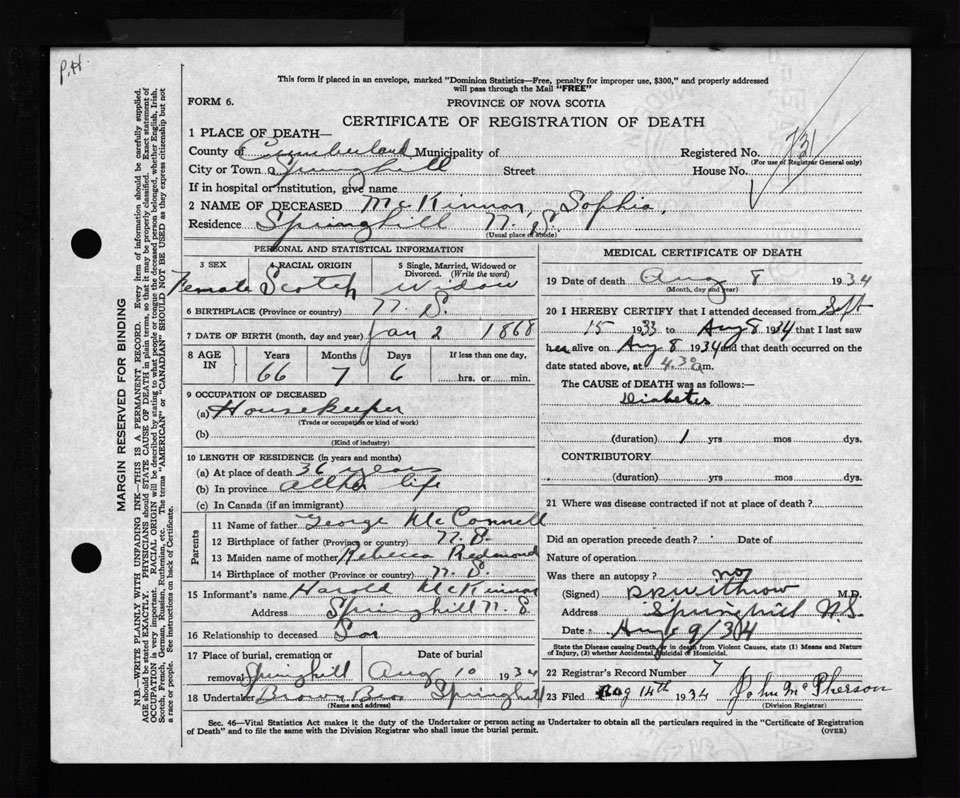 P.H.
This form if placed in an envelope, marked "Dominion Statistics—Free, penalty for improper use, $300," and properly addressed
will pass through the Mail "FREE"
FORM 6.
PROVINCE OF NOVA SCOTIA
CERTIFICATE OF REGISTRATION OF DEATH
1 PLACE OF DEATH—
County of Cumberland Municipality of
Registered No. 731
(For use of Registrar General only)
City or Town of Springhill Street House No.
If in hospital or institution, give name
2 NAME OF DECEASED McKinnon, Sophia,
Residence Springhill N. S.
(Usual place of abode)
PERSONAL AND STATISTICAL INFORMATION
3 SEX 4 RACIAL ORIGIN 5 Single, Married, Widowed or
Divorced. (Write the word)
Female Scotch Widow
6 BIRTHPLACE (Province or country) N. S.
7 DATE OF BIRTH (month, day and year) Jan 2 1868
8 AGE IN Years Months Days If less than one day,
66 7 6 hrs. or min.
9 OCCUPATION OF DECEASED
(a) Housekeeper
(Trade or occupation or kind of work)
(b)
(Kind of industry)
10 LENGTH OF RESIDENCE (in years and months)
(a) At place of death 36 years
(b) In province all her life
(c) In Canada (if an immigrant)
Parents
11 Name of father George McConnell
12 Birthplace of father (Province or country) N. B.
13 Maiden name of mother Rebecca Redmond
14 Birthplace of mother (Province or country) N. S.
15 Informant's name Harold McKinnon
Address Springhill N. S
16 Relationship to deceased Son
17 Place of burial, cremation or Date of burial
removal Springhill Aug 10 1934
18 Undertaker Brown Bros Springhill
(Name and address)
MEDICAL CERTIFICATE OF DEATH
19 Date of death Aug 8 1934
(Month, day and year)
20 I HEREBY CERTIFY that I attended deceased from Sept
15 1933 to Aug 8 1934 that I last saw
her alive on Aug 8 1934 and that death occurred on the
date stated above, at 4.30 a.m.
The CAUSE OF DEATH was as follows:—
Diabetes
(duration) 1 yrs mos dys.
CONTRIBUTORY
(duration) yrs. mos. dys.
21 Where was disease contracted if not at place of death?
Did an operation precede death? Date of
Nature of operation
Was there an autopsy? no
(Signed) Withrow M.D.
Address Springhill N.S.
Date Aug 9/34
State the Disease causing Death, or in death from Violent Causes, state (1) Means and Nature
of Injury, (2) whether Accidental, Suicidal or Homicidal.
22 Registrar's Record Number 7
23 Filed Aug 14th 1934 John McPherson
(Division Registrar)
Sec. 46—Vital Statistics Act makes it the duty of the Undertaker or person acting as Undertaker to obtain all the particulars required in the "Certificate of Registration
of Death" and to file the same with the Division Registrar who shall issue the burial permit.
(OVER)
MARGIN RESERVED FOR BINDING
N.B.—WRITE PLAINLY WITH UNFADING INK—THIS IS A PERMANENT RECORD. Every item of information should be carefully supplied.
AGE should be stated EXACTLY. PHYSICIANS should STATE CAUSE OF DEATH in plain terms, so that it may be properly classified. Exact statement of
OCCUPATION is very important. RACIAL ORIGIN will be described by stating to what people or tongue the deceased person belonged, whether English, Irish,
Scotch, French, German, Russian, Ruthenian, etc. The terms "AMERICAN" or "CANADIAN" SHOULD NOT BE USED as they express citizenship but not
a race or people. See instructions on back of Certificate.